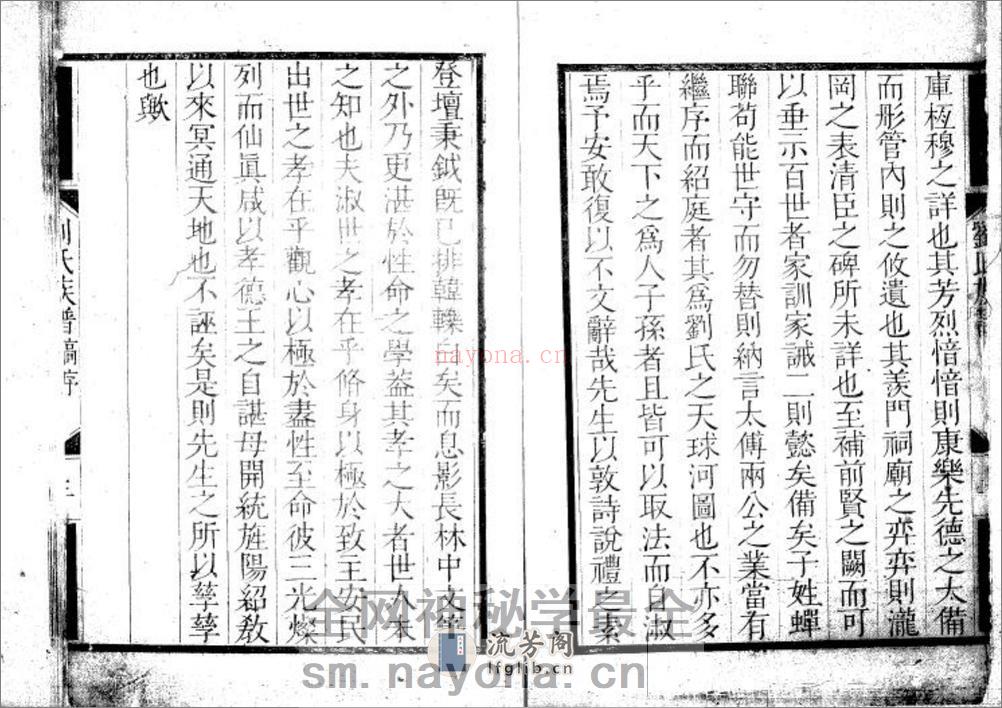 庫恆穆之詳也其芳烈愔愔則康樂先德之太備
而彤管內則之攸遺也其羨門祠廟之弈弈則瀧
岡之表清臣之碑所未詳也至補前賢之闕而可
以垂示百世者家訓家誡二則懿矣備矣子姓蟬
聯苟能世守而勿替則納言太傅兩公之業當有
繼序而紹庭者其為劉氏之天球河圖也不亦多
乎而天下之為人子孫者且皆可以取法而自淑
焉予安敢復以不文辭哉先生以敦詩說禮之素
登壇秉鉞既已排韓轢白矣而息影長林中文筆
之外乃更湛於性命之學葢其孝之大者世人未
之知也夫淑世之孝在乎脩身以極於致王安民
出世之孝在乎觀心以極於盡性至命彼三光燦
列而仙眞咸以孝德王之自諶母開統旌陽紹教
以來冥通天地也不誣矣是則先生之所以孳孳
也歟
劉氏族譜
氏族譜稿序
nayona.cn
全网神秘学最全
流芳阁
lfglib.cn
sm.nayona.cn